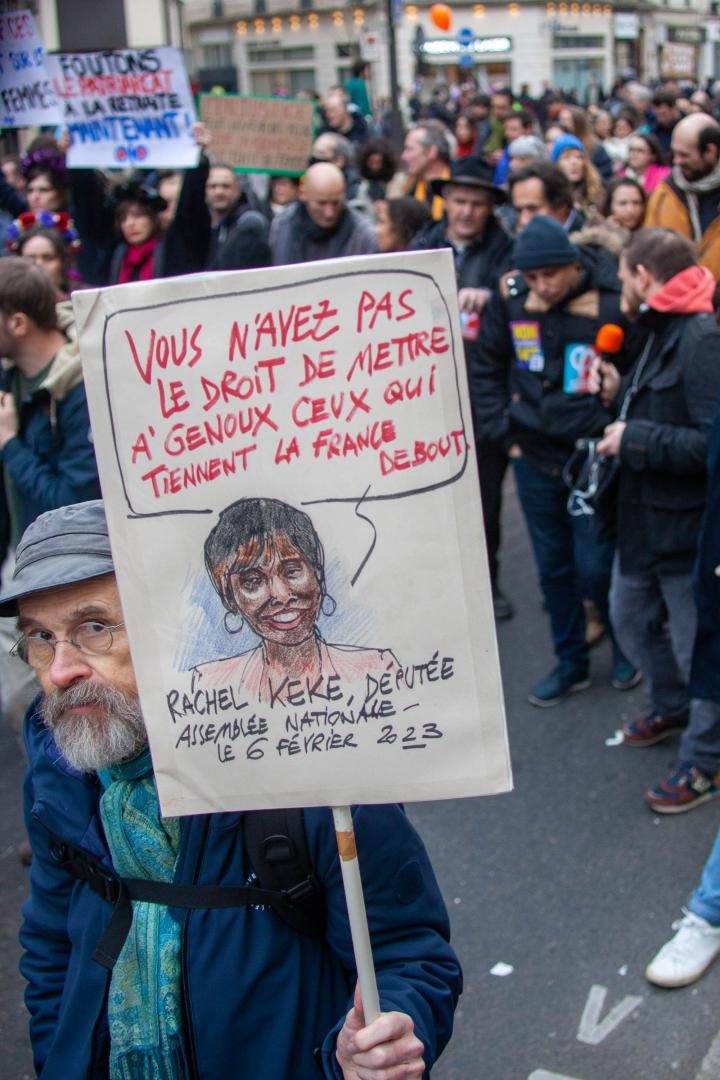 FEMMES
FOUTONS
LE PATRIARCAT
A LA RETRAITE
MAINTENANT !
VOUS N'AVEZ PAS
LE DROIT DE METTRE
A' GENOUX CEUX QUI
TIENNENT LA FRANCE
DEBOUT.
RACHEL KEKE, DÉPUTÉE
ASSEMBLÉE NATIONALE -
LE 6 FÉVRIER 2023